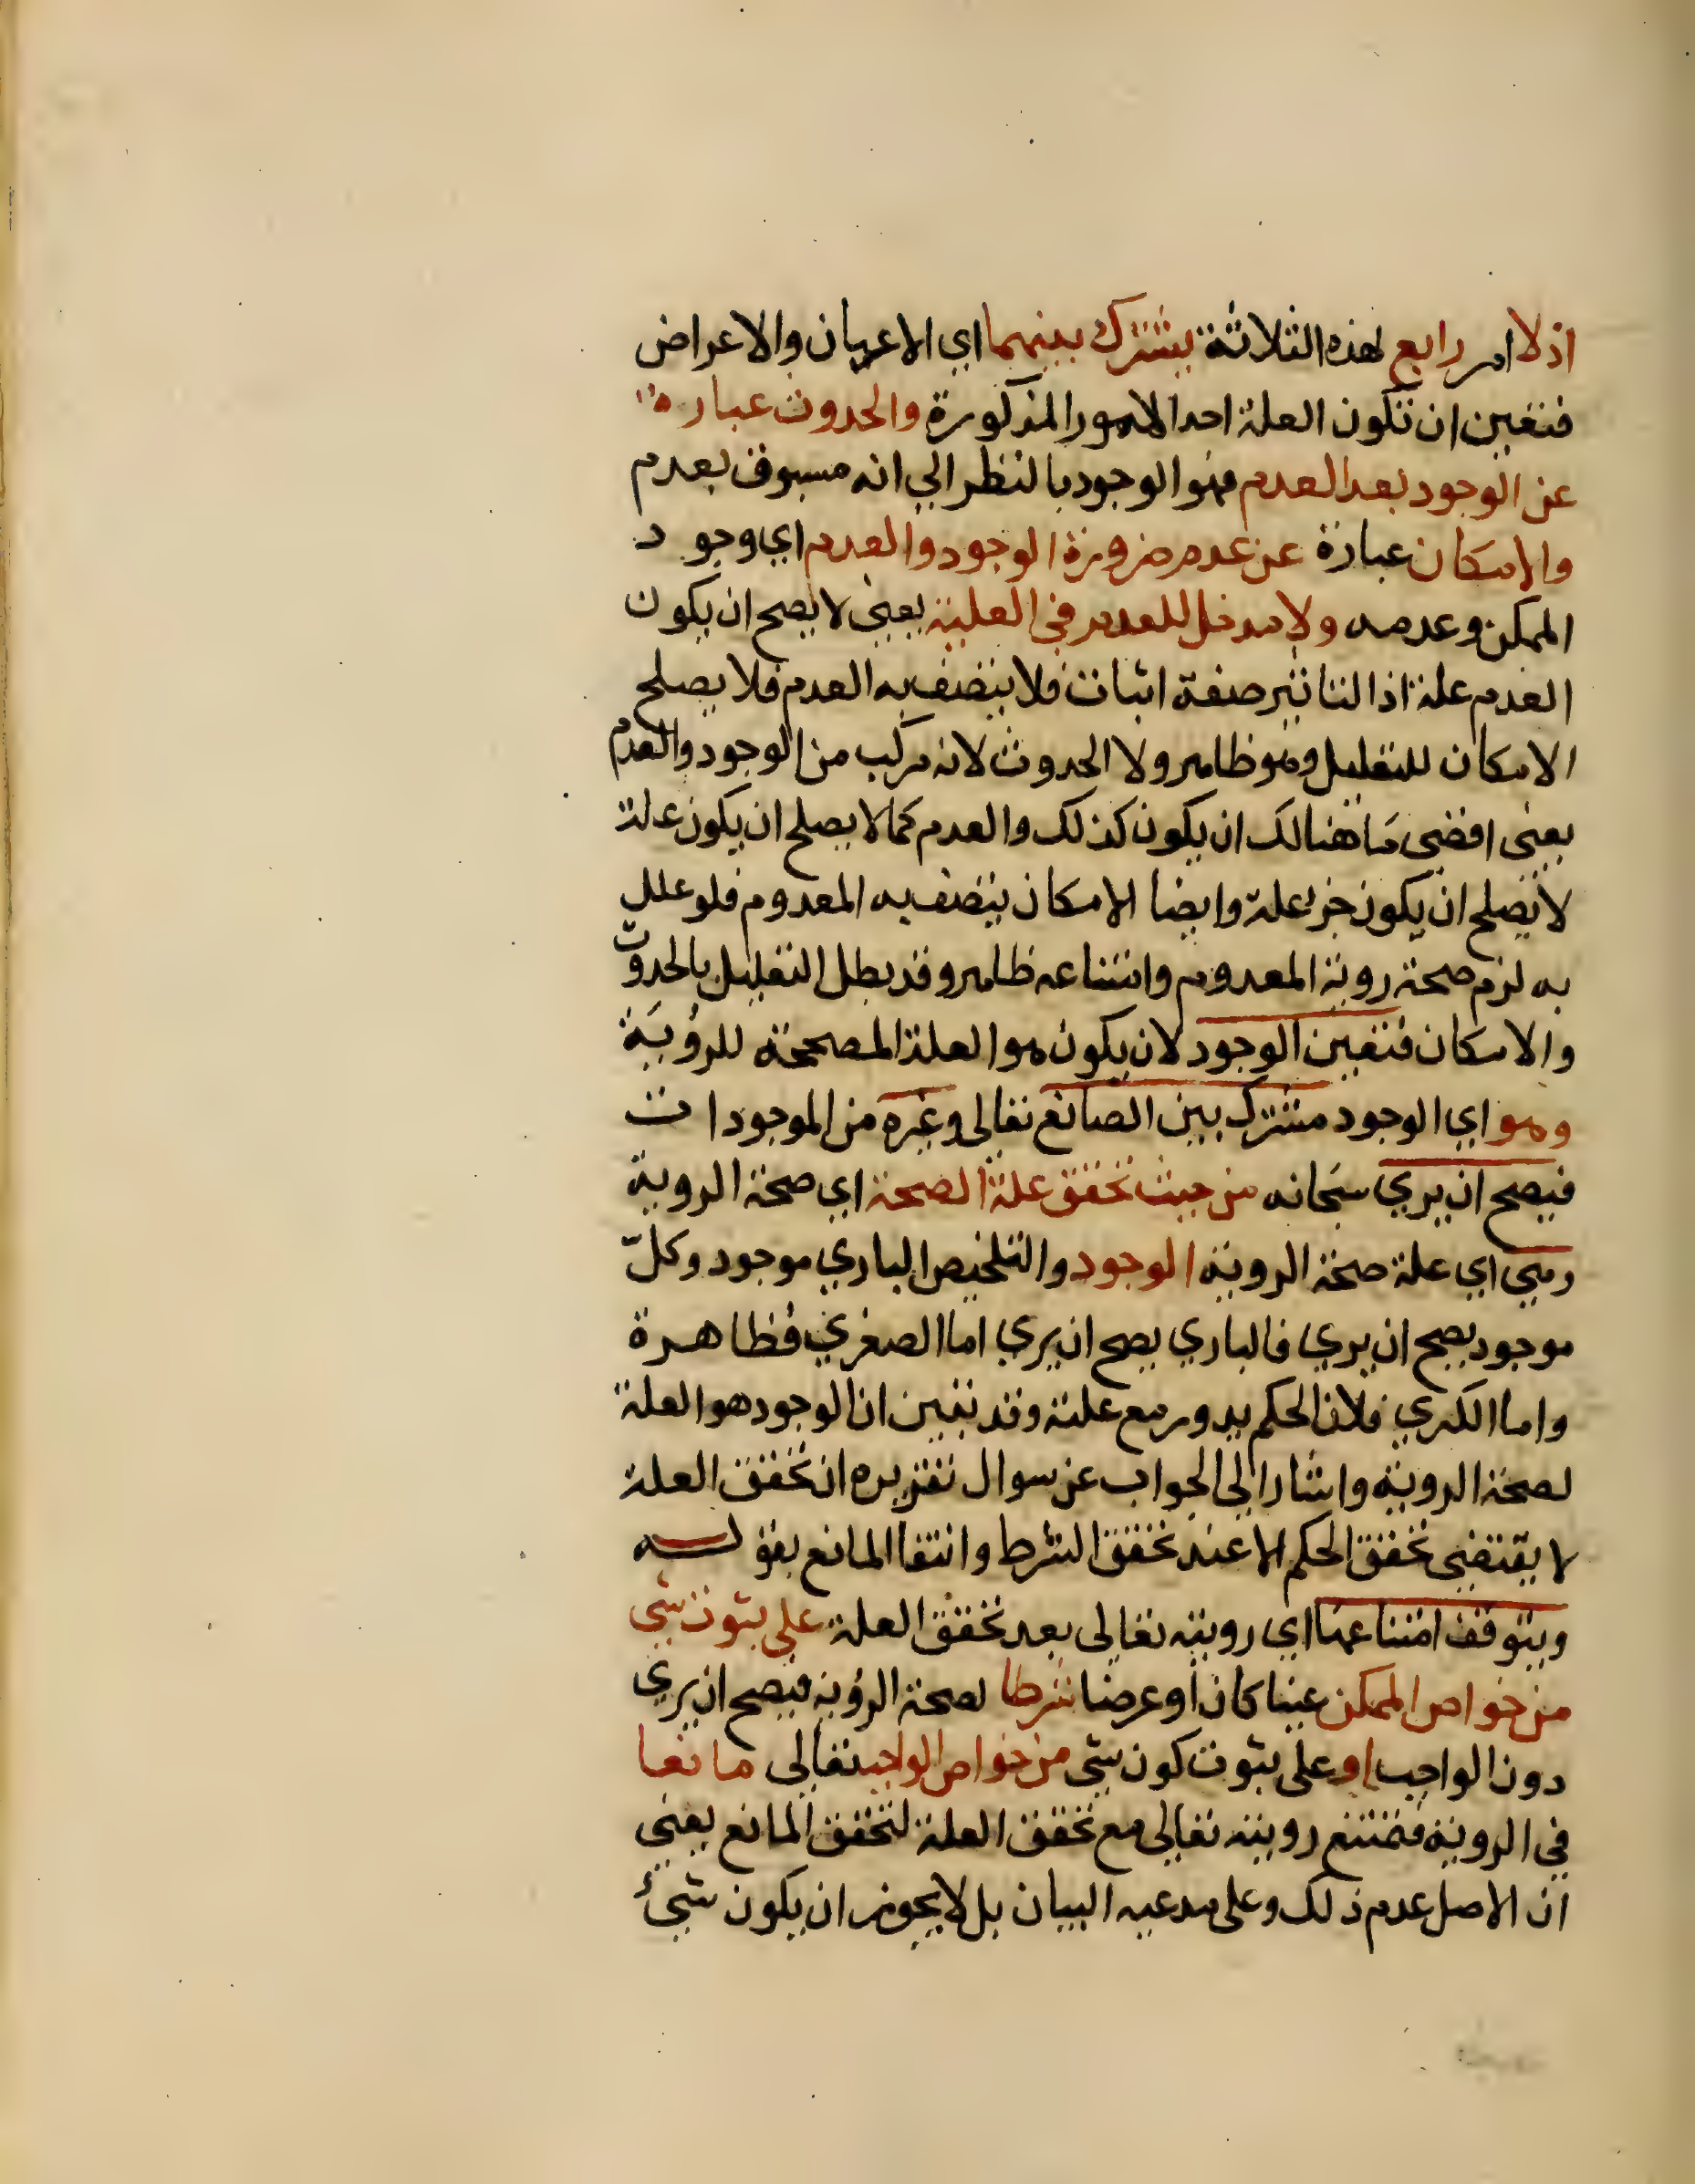 اذ لا امر رابع لهذه الثلاثة يشترك بينهما اي الاعيان والاعراض
فتعين ان تكون العلة احد الامور المذكورة والحدوث عبارة
عن الوجود بعد العدم فهو الوجود بالنظر الي انه مسبوق بعدم
والامكان عبارة عن عدم ضرورة الوجود والعدم اي وجود
الممكن وعدمه ولا مدخل للعدم في العلية يعني لا يصح ان يكون
العدم علة اذ التاثير صفة اثبات فلا يتصف به العدم فلا يصلح
الامكان للتعليل وهو ظاهر ولا الحدوث لانه مركب من الوجود والعدم
يعني اقضي ما هنالك ان يكون كذلك والعدم كما لا يصلح ان يكون علة
لا يصلح ان يكون جزء علة وايضا الامكان يتصف به المعدوم فلو علل
به لزم صحة روية المعدوم وامتناعه ظاهر وقد بطل التعليل بالحدوث
والامكان فتعين الوجود لان يكون هو العلة المصححة للرؤية
وهو اي الوجود مشترك بين الصانع تعالى وغيره من الموجودات
فيصح ان يري سبحانه من حيث تحقق علة الصحة اي صحة الروية
وهي اي علة صحة الروية الوجود والتلخيص الباري موجود وكلّ
موجود يصح ان يري فالباري يصح ان يري اما الصغري فظاهرة
واما الكبري فلان الحكم يدور مع علته وقد تبين ان الوجود هو العلة
لصحة الروية واشار الي الجواب عن سوال تقريره ان تحقق العلة
لا يقتضي تحقق الحكم الا عند تحقق الشرط وانتفا المانع بقوله
ويتوقف امتناعها اي رويته تعالى بعد تحقق العلة علي ثبوت شي
من خواص الممكن عينا كان او عرضا شرطا لصحة الرؤية فيصح ان يري
دون الواجب او على ثبوت كون شي من خواص الواجب تعالى مانعا
في الروية فتمتنع رويته تعالى مع تحقق العلة لتحقق المانع يعني
ان الاصل عدم ذلك وعلى مدعيه البيان بل لا يجوز ان يكون شيء